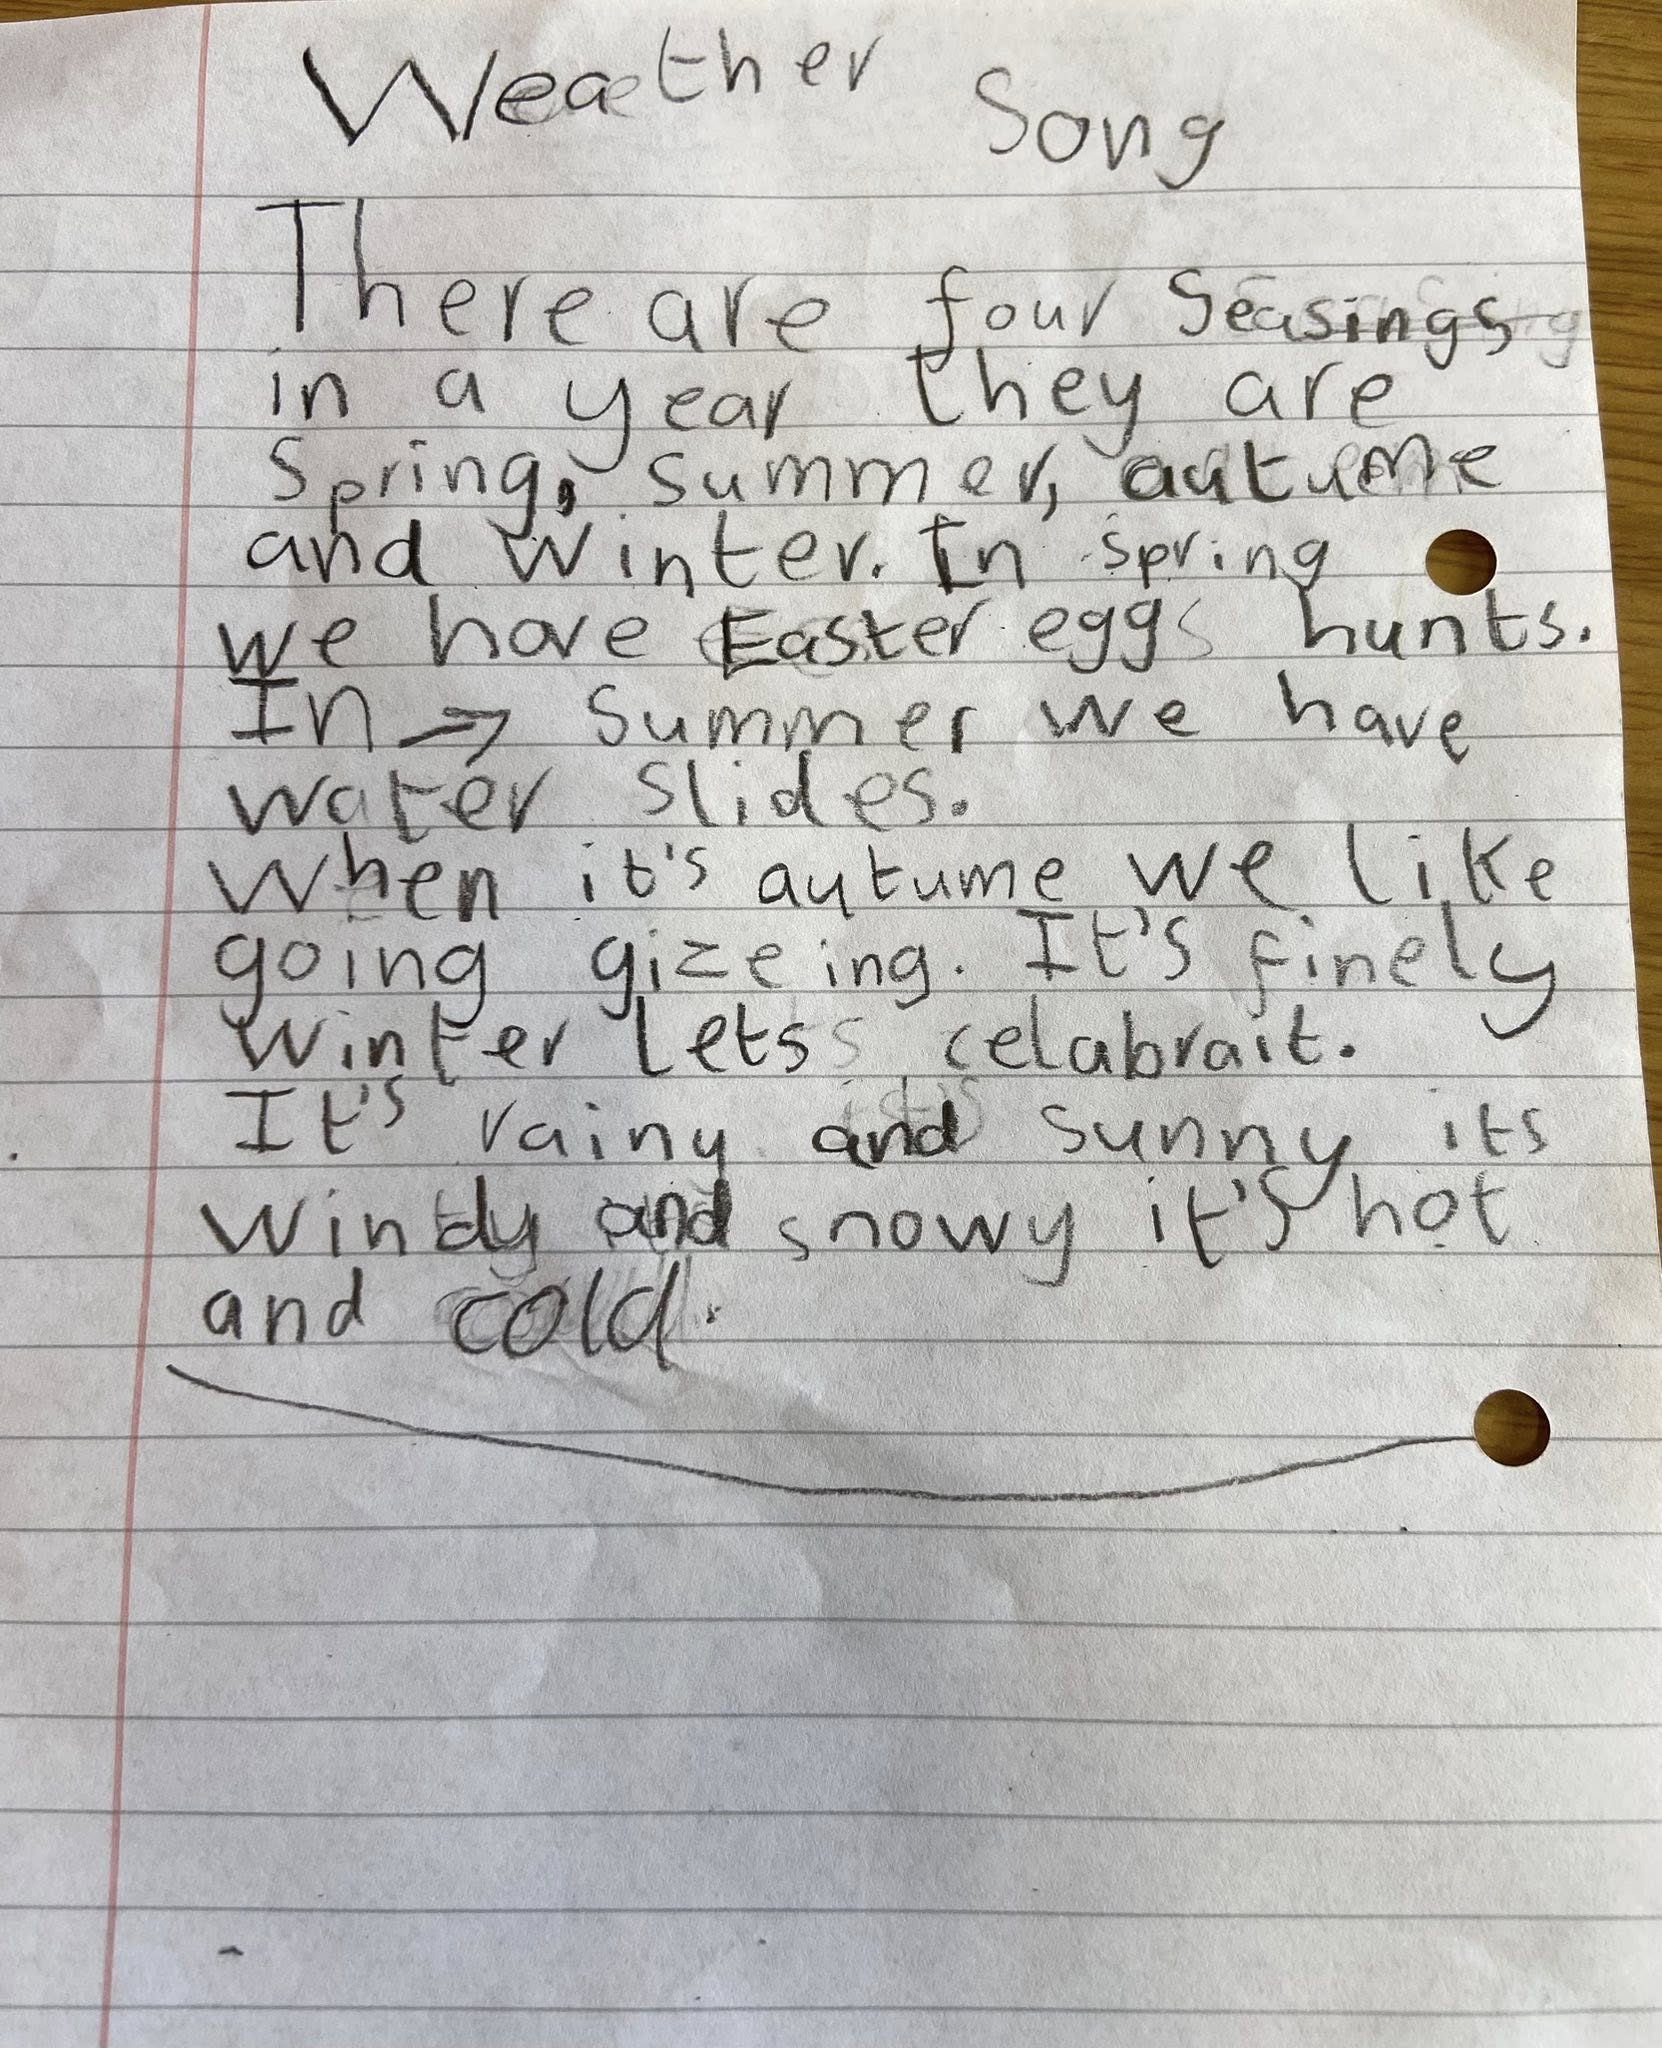 Weather Song
There are four Seasings
in a year they are
Spring, summer, autume
and winter. In spring
we have Easter eggs hunts.
In → Summer we have
water slides.
When it's autume we like
going gizeing. It's finely
winter lets celabrait.
It's rainy and sunny its
windy and snowy it's hot
and cold.